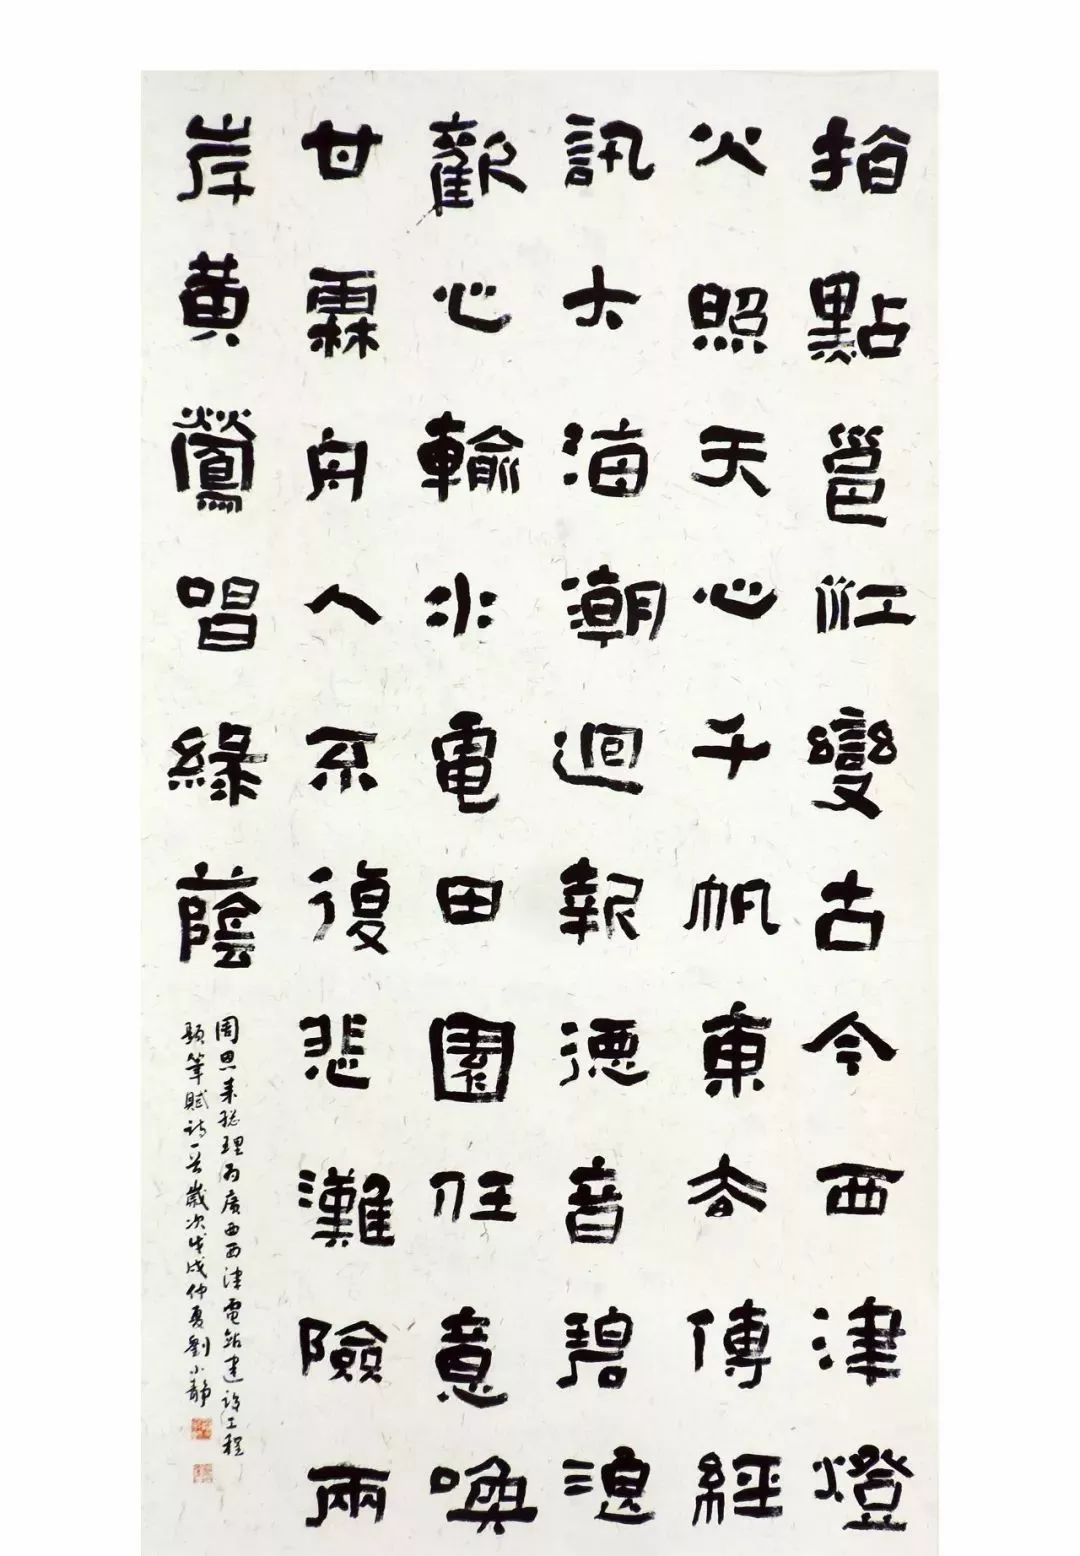 指點邕江變古今西津燈
火照天心千帆東去傳經
訊大海潮迴報德音碧浪
歡心輸水電田園任意喚
甘霖舟人不復悲灘險兩
岸黃鶯唱綠蔭
周恩来總理為廣西西津電站建設工程
題筆賦詩一首歲次戊戌仲夏劉小静